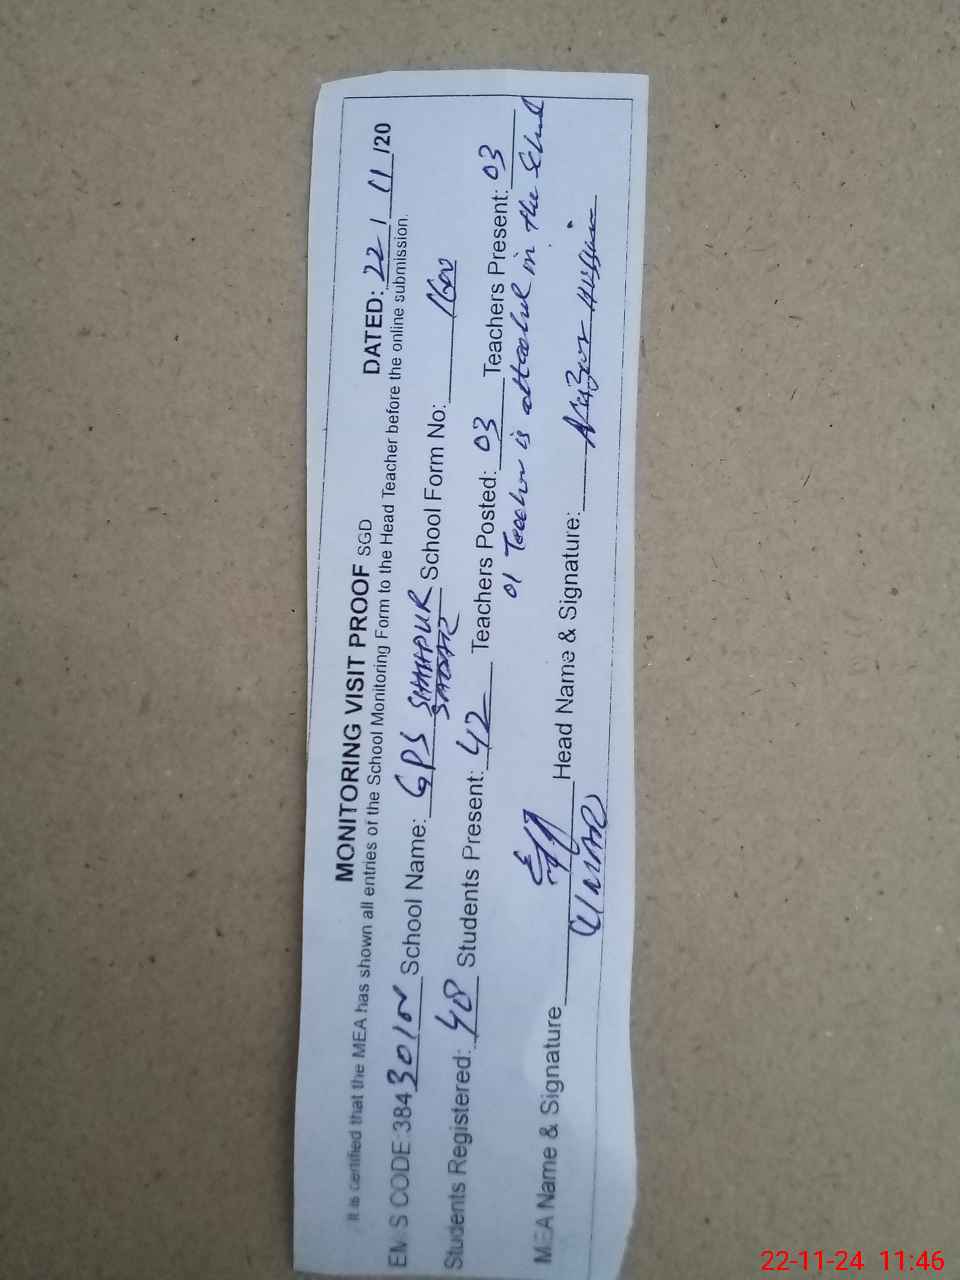 MONITORING VISIT PROOF SGD DATED: 22 / 11 /20
It is certified that the MEA has shown all entries of the School Monitoring Form to the Head Teacher before the online submission.
EMIS CODE:384 School Name: GPS SHAHPUR SADAR School Form No:
Students Registered: 48 Students Present: 42 Teachers Posted: 03 Teachers Present: 03
01 Teacher is attached in the School
MEA Name & Signature UMAR Head Name & Signature:
22-11-24 11:46